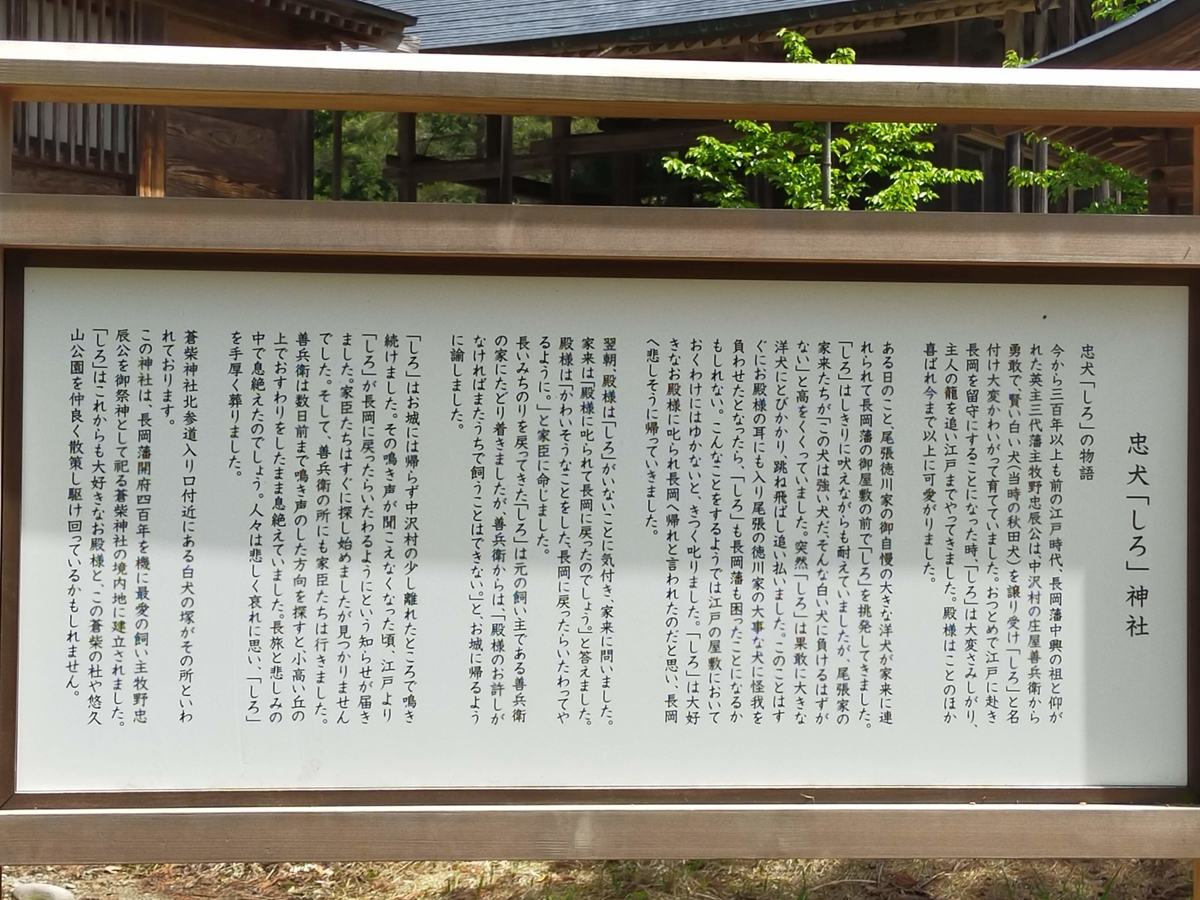 忠犬「しろ」神社
忠犬「しろ」の物語
今から三百年以上も前の江戸時代、長岡藩中興の祖と仰が
れた英主三代藩主牧野忠辰公は、中沢村の庄屋善兵衛から
勇敢で、賢い白い犬(当時の秋田犬)を譲り受け「しろ」と名
付け大変かわいがって育てていました。おつとめで江戸に赴き
長岡を留守にすることになった時、「しろ」は大変さみしがり、
主人の籠を追い江戸までやってきました。殿様はことのほか
喜ばれ今まで以上に可愛がりました。
ある日のこと、尾張徳川家の御自慢の大きな洋犬が家来に連
れられて長岡藩の御屋敷の前で「しろ」を挑発してきました。
「しろ」はしきりに吠えながらも耐えていましたが、尾張家の
家来たちが「この犬は強い犬だ、そんな白い犬に負けるはずが
ない」と高をくくっていました。突然「しろ」は果敢に大きな
洋犬にとびかかり、跳ね飛ばし追い払いました。このことはす
ぐにお殿様の耳にも入り尾張の徳川家の大事な犬に怪我を
負わせたとなったら、「しろ」も長岡藩も困ったことになるか
もしれない。こんなことをするようでは江戸の屋敷において
おくわけにはゆかないと、きつく叱りました。「しろ」は大好
きなお殿様に叱られ長岡へ帰れと言われたのだと思い、長岡
へ悲しそうに帰っていきました。
翌朝、殿様は「しろ」がいないことに気付き、家来に問いました。
家来は「殿様に叱られて長岡に戻ったのでしょう。」と答えました。
殿様は「かわいそうなことをした、長岡に戻ったらいたわってや
るように。」と家臣に命じました。
長いみちのりを戻ってきた「しろ」は元の飼い主である善兵衛
の家にたどり着きましたが、善兵衛からは、「殿様のお許しが
なければまたうちで飼うことはできない。」と、お城に帰るよう
に諭しました。
「しろ」はお城には帰らず中沢村の少し離れたところで鳴き
続けました。その鳴き声が聞こえなくなった頃、江戸より
「しろ」が長岡に戻ったらいたわるようにという知らせが届き
ました。家臣たちはすぐに探し始めましたが見つかりません
でした。そして、善兵衛の所にも家臣たちは行きました。
善兵衛は数日前まで鳴き声のした方向を探すと、小高い丘の
上でおすわりをしたまま息絶えていました。長旅と悲しみの
中で息絶えたのでしょう。人々は悲しく哀れに思い、「しろ」
を手厚く葬りました。
蒼柴神社北参道入り口付近にある白犬の塚がその所といわ
れております。
この神社は、長岡藩開府四百年を機に最愛の飼い主牧野忠
辰公を御祭神として祀る蒼柴神社の境内地に建立されました。
「しろ」はこれからも大好きなお殿様と、この蒼柴の杜や悠久
山公園を仲良く散策し駆け回っているかもしれません。